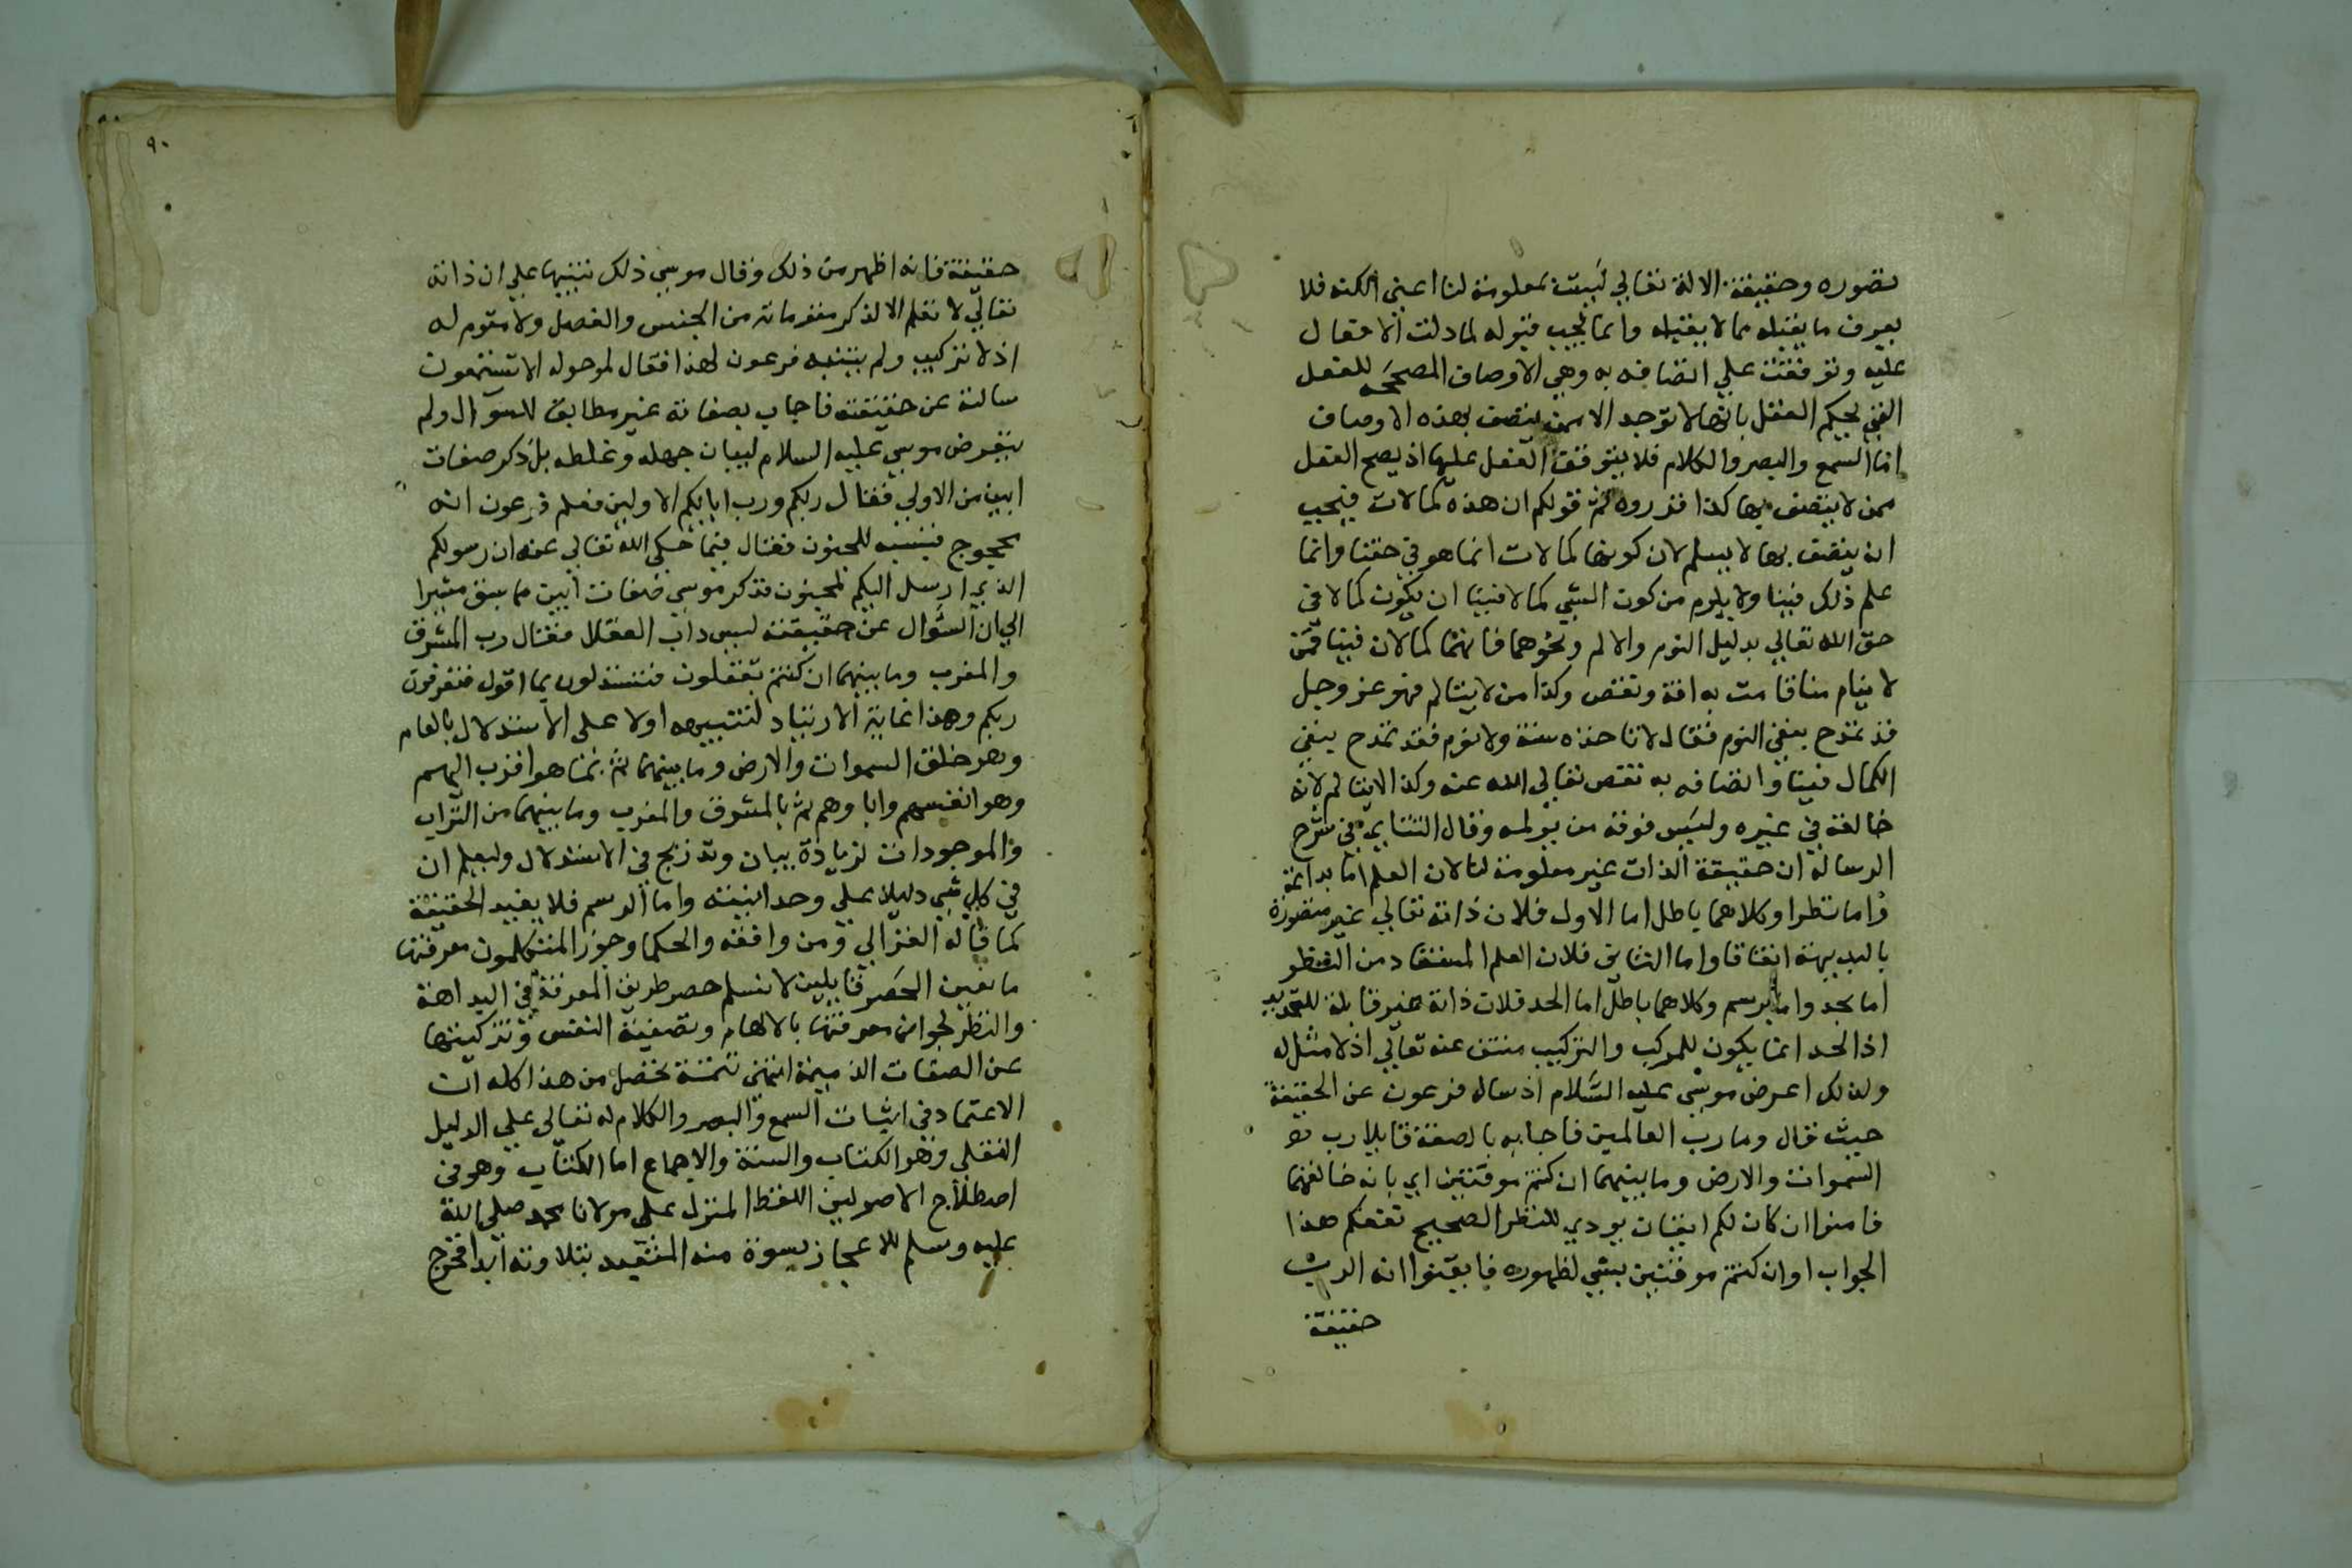 تصوره وحقيقة الاله تعالي ليست بمعلومة لنا اعني الكنه فلا
يعرف ما يقبله مما لا يقبله وانما يجب قبوله لما دلت الافعال
عليه وتوقفت علي اتصافه به وهي الاوصاف المصححه للفعل
التي يحكم العقل بانها لا توجد الا ممن يتصف بهذه الاوصاف
اما السمع والبصر والكلام فلا يتوقف الفعل عليها اذ يصح الفعل
ممن لا يتصف بها كذا قرروه ثم قولكم ان هذه كمالات فيجب
ان يتصف بها لا يسلم لان كونها كمالات انما هو في حقنا وانما
علم ذلك فينا ولا يلزم من كون الشي كمالا فينا ان يكون كمالا في
حق الله تعالي بدليل النوم والالم ونحوهما فانهما كمالان فينا فمن
لا ينام منا قامت به افة ونقص وكذا من لا يتالم فهو عز وجل
قد تمدح بنفي النوم فقال لا تاخذه سنة ولا نوم فقد تمدح بنفي
الكمال فينا واتصافه به نقص تعالي الله عنه وكذا لا يتالم لانه
خالقه في غيره وليس فوقه من يولمه وقال التتايي في شرح
الرسالة ان حقيقة الذات غير معلومة لنا لان العلم اما بداهة
واما نظرا وكلاهما باطل اما الاول فلان ذاته تعالي غير متصورة
بالبديهة اتفاقا واما الثاني فلان العلم المستفاد من النظر
اما بحد واما برسم وكلاهما باطل اما الحد فلان ذاته غير قابلة للتحديد
اذ الحد انما يكون للمركب والتركيب منتف عنه تعالي اذ لا مثل له
ولذلك اعرض موسي عليه السلام اذ ساله فرعون عن الحقيقة
حيث قال وما رب العالمين فاجابه بالصفة قايلا رب
السموات والارض وما بينهما ان كنتم موقنين اي بانه خالقهما
فامنوا ان كان لكم ايقان يودي للنظر الصحيح نفعكم هذا
الجواب او ان كنتم موقنين بشي لظهوره فايقنوا انه الرب
حقيقة
٩٠
حقيقة فانه اظهر من ذلك وقال موسي ذلك تنبيها علي ان ذاته
تعالي لا تعلم الا بذكر مقوماته من الجنس والفصل ولا مقوم له
اذ لا تركيب ولم يتنبه فرعون لهذا فقال لمن حوله الا تستمعون
سالته عن حقيقته فاجاب بصفاته غير مطابق للسوال ولم
يتعرض موسي عليه السلام لبيان جهله وغلطه بل ذكر صفات
ابين من الاولي فقال ربكم ورب ابايكم الاولين فعلم فرعون انه
محجوج فنسبه للجنون فقال فيما حكي الله تعالي عنه ان رسولكم
الذي ارسل اليكم لمجنون فذكر موسي صفات ابين مما سبق مشيرا
الي ان السوال عن حقيقته ليس داب العقلا فقال رب المشرق
والمغرب وما بينهما ان كنتم تعقلون فتستدلون بما اقول فتعرفون
ربكم وهذا غاية الارشاد لتنبيهه اولا علي الاستدلال بالعام
وهو خلق السموات والارض وما بينهما ثم بما هو اقرب اليهم
وهو انفسهم واباوهم ثم بالمشرق والمغرب وما بينهما من التراب
والموجودات لزيادة بيان وتدريج في الاستدلال وليعلم ان
في كل شي دليلا علي وحدانيته واما الرسم فلا يفيد الحقيقة
كما قاله الغزالي ومن وافقه والحكما وجوز المتكلمون معرفتها
مانعين الحصر قايلين لا نسلم حصر طريق المعرفة في البداهة
والنظر لجواز معرفتها بالالهام وتصفية النفس وتزكيتها
عن الصفات الذميمة انتهي تتمة تحصل من هذا كله ان
الاعتماد في اثبات السمع والبصر والكلام له تعالي علي الدليل
النقلي وهو الكتاب والسنة والاجماع اما الكتاب وهو في
اصطلاح الاصوليين اللفظ المنزل علي مولانا محمد صلي الله
عليه وسلم للاعجاز بسورة منه المتعبد بتلاوته ابدا فخرج